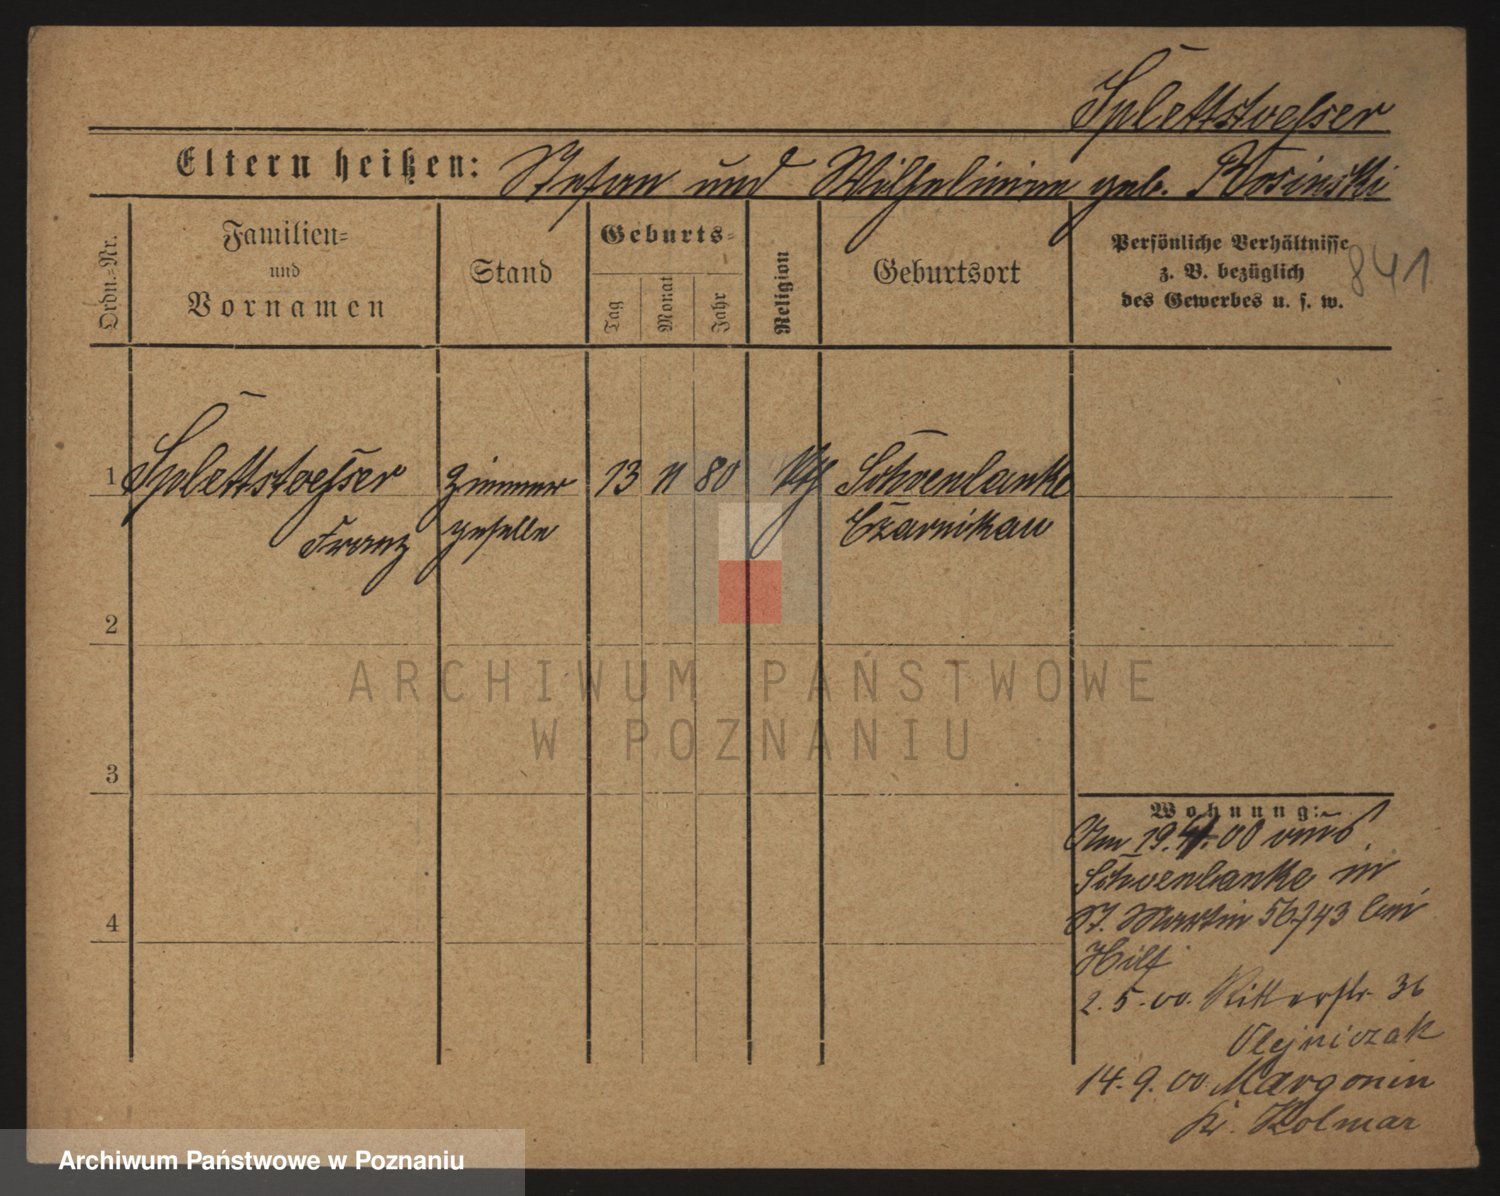 Splettstoeſser
Eltern heißen: Stefan und Wilhelmine geb. Rosinski
Ordn.-Nr.
Familien-
und
Vornamen
Stand
Geburts-
Tag
Monat
Jahr
Religion
Geburtsort
Persönliche Verhältnisse
z. B. bezüglich
des Gewerbes u. s. w.
841
1 Splettstoeſser Zimmer 13 11 80 Kth Schoenlanke
Franz geselle Czarnikau
2
3
4
Wohnung:
Am 19.4.00 aus
Schoenlanke in
St. Martin 56/43 bei
Hilf
2.5.00. Ritterstr. 36
Olejniczak
14.9.00 Margonin
Kr. Kolmar
ARCHIWUM PAŃSTWOWE
W POZNANIU
Archiwum Państwowe w Poznaniu